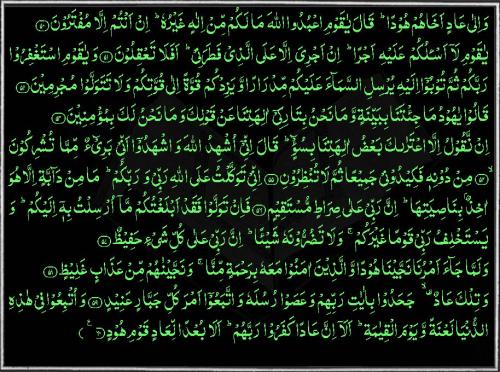 وَاِلٰى عَادٍ اَخَاهُمْ هُوْدًا ؕ قَالَ يٰقَوْمِ اعْبُدُوا اللّٰهَ مَا لَكُمْ مِّنْ اِلٰهٍ غَيْرُهٗ ؕ اِنْ اَنْتُمْ اِلَّا مُفْتَرُوْنَ ﴿۵۰﴾
يٰقَوْمِ لَاۤ اَسْئَلُكُمْ عَلَيْهِ اَجْرًا ؕ اِنْ اَجْرِىَ اِلَّا عَلَى الَّذِىْ فَطَرَنِىْ ؕ اَفَلَا تَعْقِلُوْنَ ﴿۵۱﴾ وَيٰقَوْمِ اسْتَغْفِرُوْا
رَبَّكُمْ ثُمَّ تُوْبُوْۤا اِلَيْهِ يُرْسِلِ السَّمَآءَ عَلَيْكُمْ مِّدْرَارًا وَّيَزِدْكُمْ قُوَّةً اِلٰى قُوَّتِكُمْ وَلَا تَتَوَلَّوْا مُجْرِمِيْنَ ﴿۵۲﴾
قَالُوْا يٰهُوْدُ مَا جِئْتَنَا بِبَيِّنَةٍ وَّمَا نَحْنُ بِتَارِكِىْۤ اٰلِهَتِنَا عَنْ قَوْلِكَ وَمَا نَحْنُ لَكَ بِمُؤْمِنِيْنَ ﴿۵۳﴾
اِنْ نَّقُوْلُ اِلَّا اعْتَرٰٮكَ بَعْضُ اٰلِهَتِنَا بِسُوْٓءٍ ؕ قَالَ اِنِّىْۤ اُشْهِدُ اللّٰهَ وَاشْهَدُوْۤا اَنِّىْ بَرِىْٓءٌ مِّمَّا تُشْرِكُوْنَ
﴿۵۴﴾ مِنْ دُوْنِهٖ فَكِيْدُوْنِىْ جَمِيْعًا ثُمَّ لَا تُنْظِرُوْنِ ﴿۵۵﴾ اِنِّىْ تَوَكَّلْتُ عَلَى اللّٰهِ رَبِّىْ وَرَبِّكُمْ ؕ مَا مِنْ دَآبَّةٍ اِلَّا هُوَ
اٰخِذٌۢ بِنَاصِيَتِهَا ؕ اِنَّ رَبِّىْ عَلٰى صِرَاطٍ مُّسْتَقِيْمٍ ﴿۵۶﴾ فَاِنْ تَوَلَّوْا فَقَدْ اَبْلَغْتُكُمْ مَّاۤ اُرْسِلْتُ بِهٖۤ اِلَيْكُمْ ؕ وَ
يَسْتَخْلِفُ رَبِّىْ قَوْمًا غَيْرَكُمْ ۚ وَلَا تَضُرُّوْنَهٗ شَيْئًا ؕ اِنَّ رَبِّىْ عَلٰى كُلِّ شَىْءٍ حَفِيْظٌ ﴿۵۷﴾
وَلَمَّا جَآءَ اَمْرُنَا نَجَّيْنَا هُوْدًا وَّالَّذِيْنَ اٰمَنُوْا مَعَهٗ بِرَحْمَةٍ مِّنَّا ۚ وَنَجَّيْنٰهُمْ مِّنْ عَذَابٍ غَلِيْظٍ ﴿۵۸﴾
وَتِلْكَ عَادٌ ۛ جَحَدُوْا بِاٰيٰتِ رَبِّهِمْ وَعَصَوْا رُسُلَهٗ وَاتَّبَعُوْۤا اَمْرَ كُلِّ جَبَّارٍ عَنِيْدٍ ﴿۵۹﴾ وَاُتْبِعُوْا فِىْ هٰذِهِ
الدُّنْيَا لَعْنَةً وَّيَوْمَ الْقِيٰمَةِ ؕ اَلَاۤ اِنَّ عَادًا كَفَرُوْا رَبَّهُمْ ؕ اَلَا بُعْدًا لِّعَادٍ قَوْمِ هُوْدٍ ﴿۶۰﴾